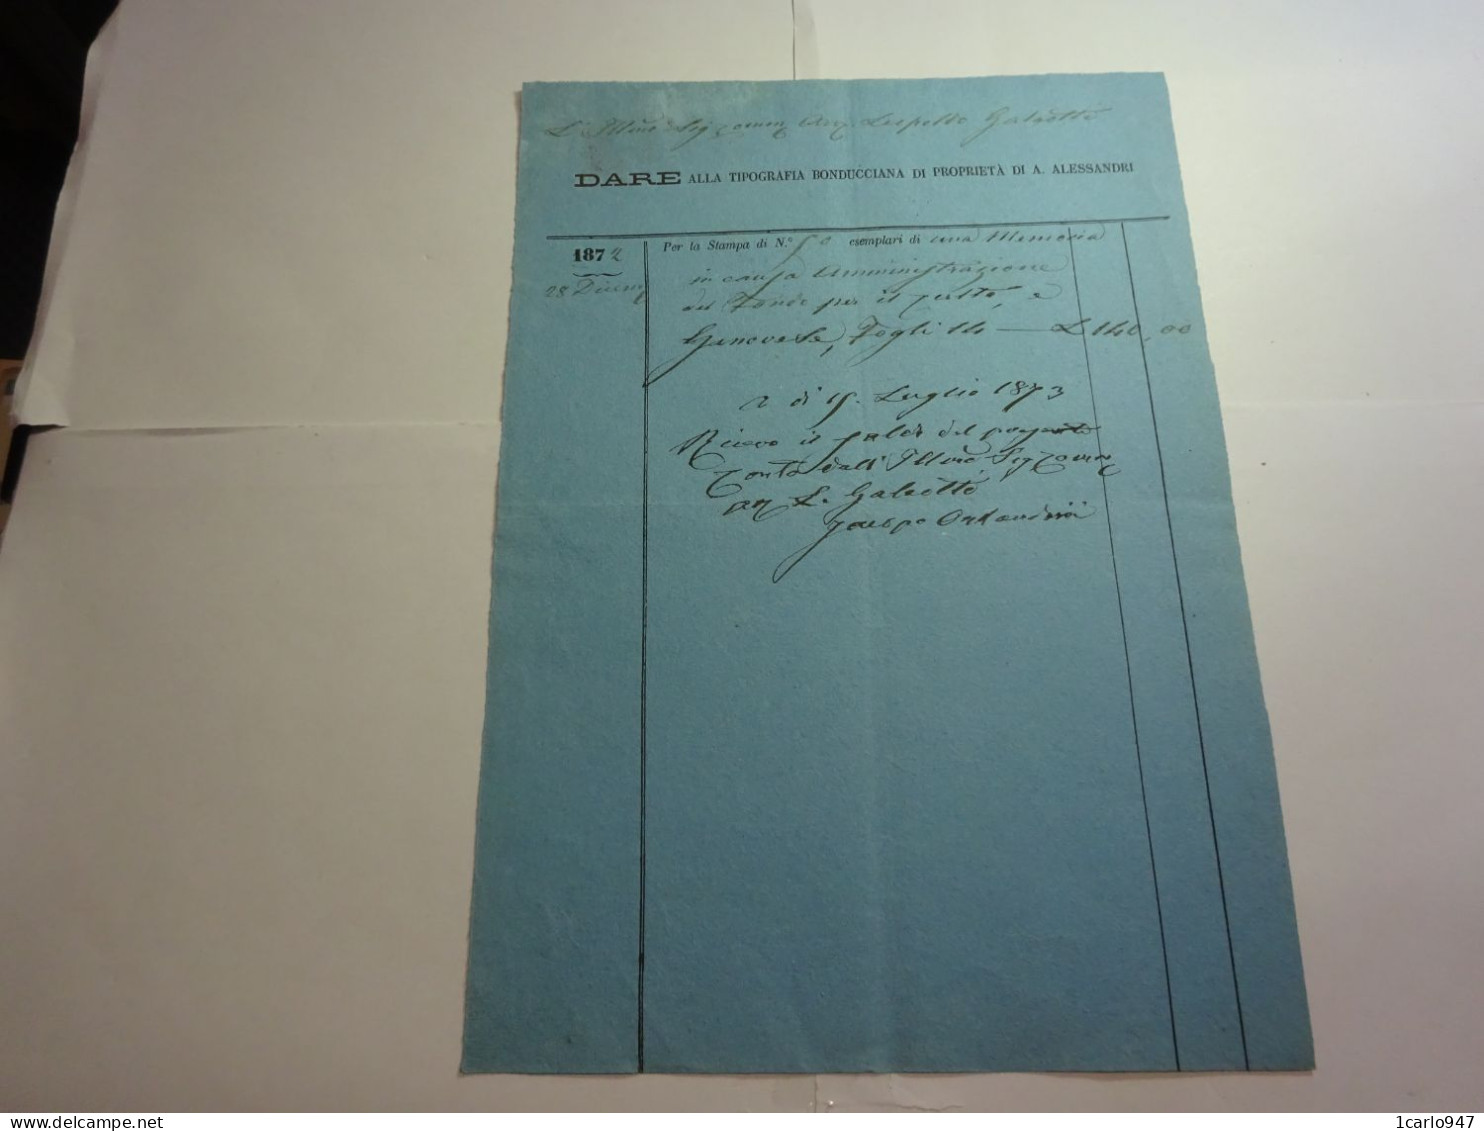 L'Illmo Sig Comm Avv. Leopoldo Galeotti
DARE ALLA TIPOGRAFIA BONDUCCIANA DI PROPRIETÀ DI A. ALESSANDRI
1872 Per la Stampa di N.° 50 esemplari di una Memoria
28 Dicem in causa Amministrazione
del Fondo per il Culto, e
Genovese, Fogli 14 — L 140,00
di 15. Luglio 1873
Ricevo il saldo del presente
Conto dall' Illmo Sig Comm
Avv L. Galeotti